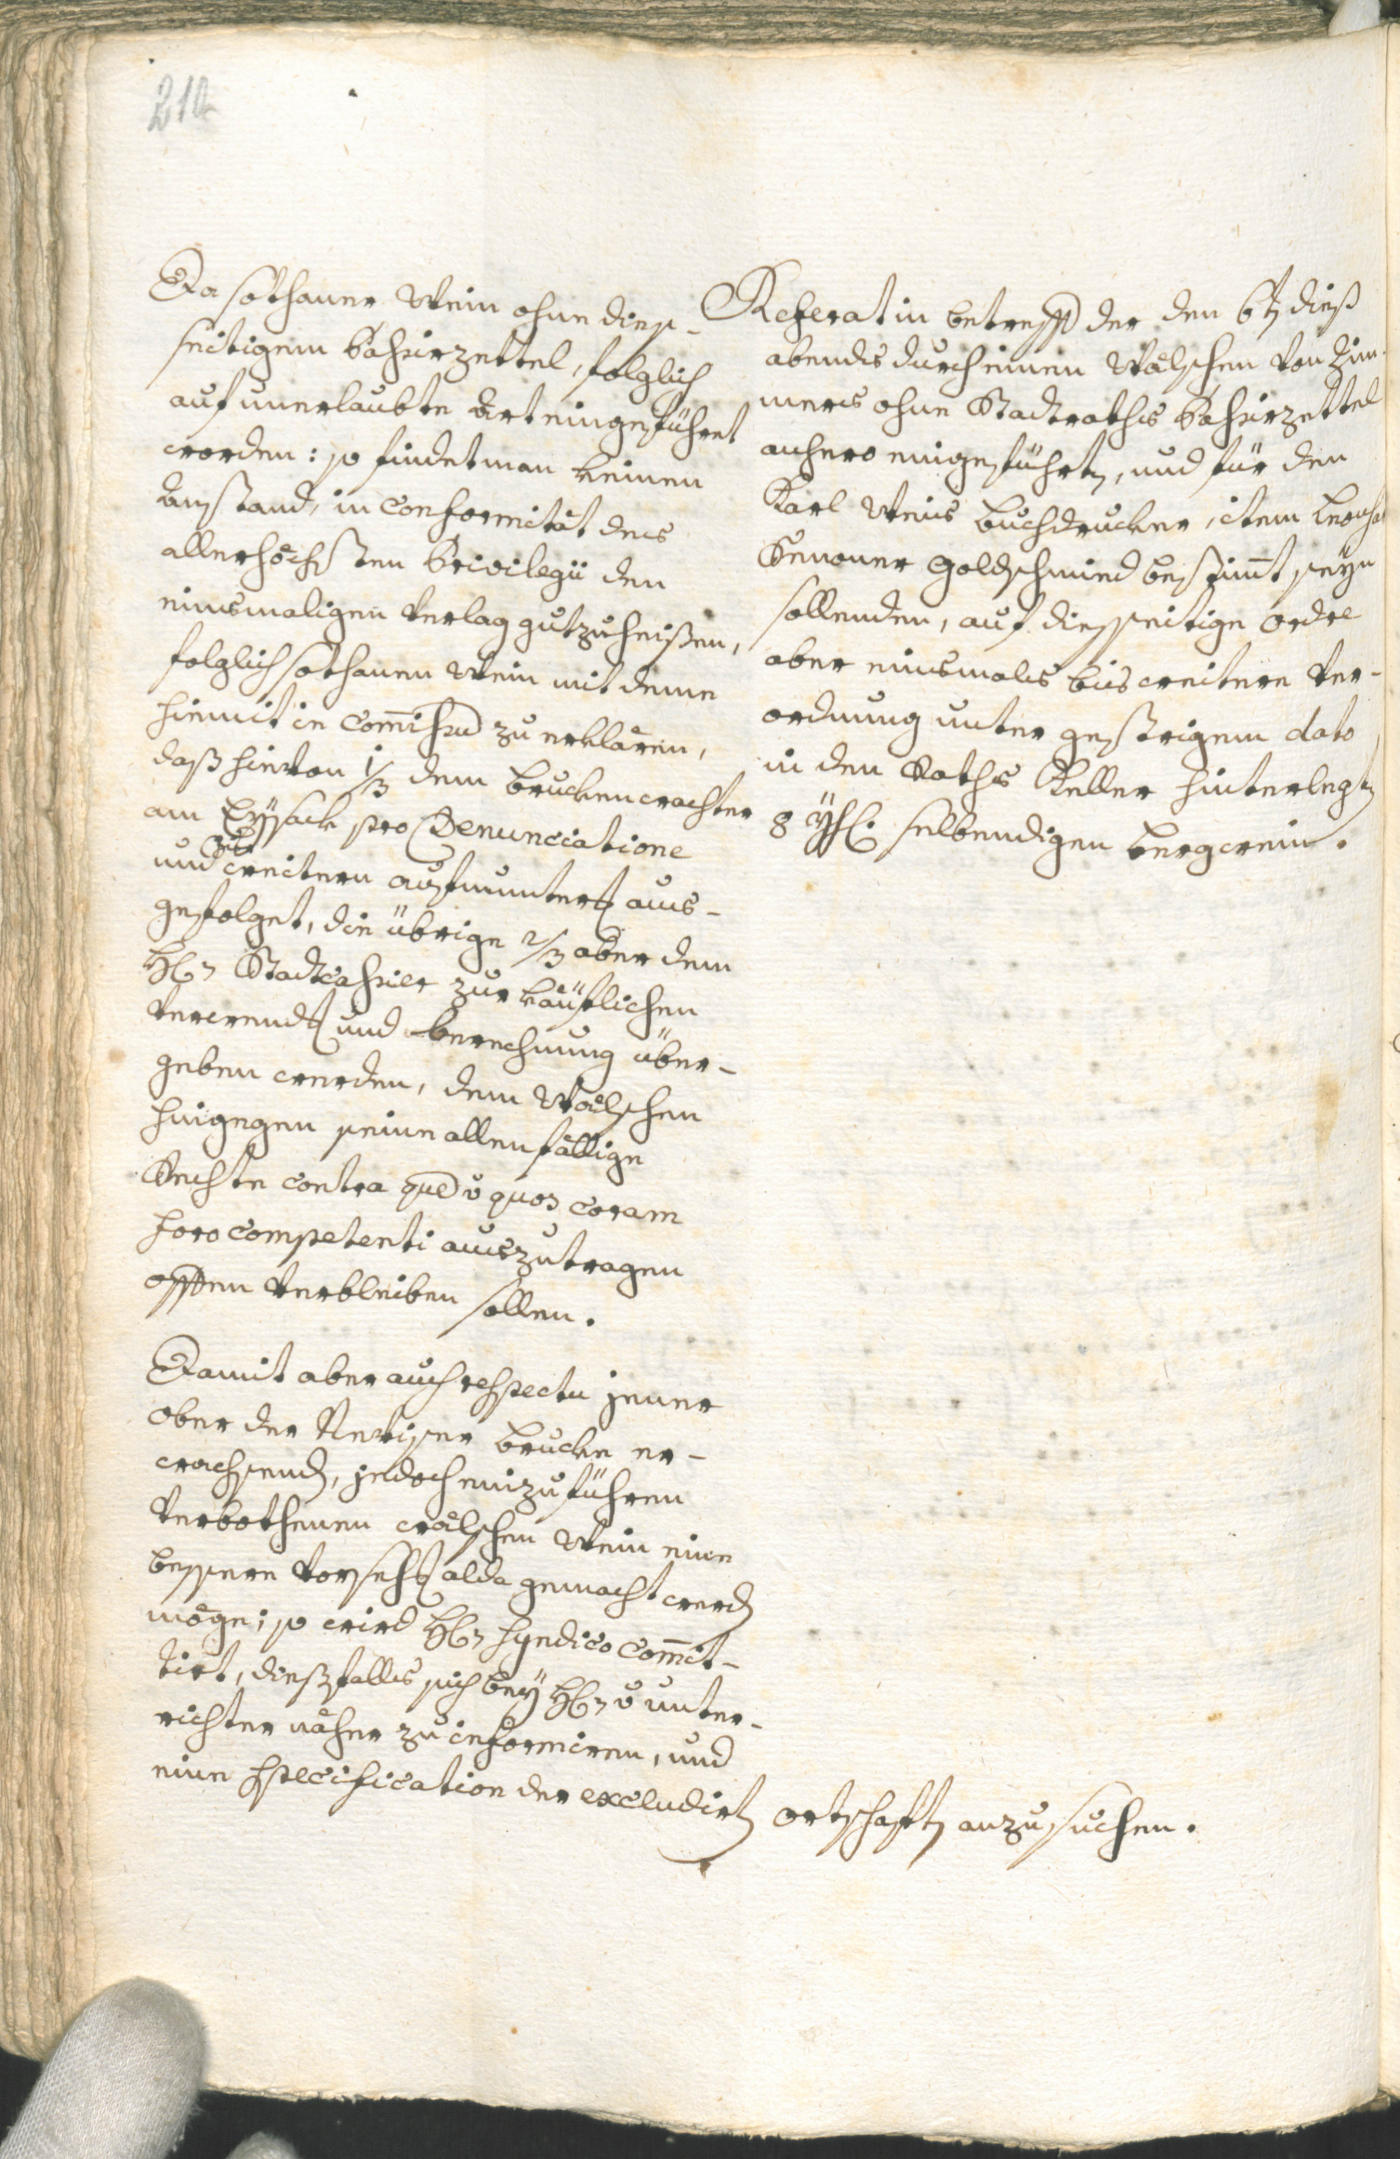 210
Da sothaner Wein ohne dies-
seitigem Passirzettel, folglich
auf unerlaubte Art eingeführet
worden: so findet man keinen
Anstand, in Conformität des
allerhöchsten Privilegii den
einsmaligen Verlag gutzuheißen,
folglich sothanen Wein mit deme
hiemit in Commissu zu erklären,
daß hievon 1/3 dem Bruckenwachter
am Eysack pro Denunciatione
und zur weitern Aufmunterg aus-
gefolget, die übrige 2/3 aber dem
Hr Stadtcassier zur käuflichen
Verwendg und Berechnung über-
geben werden, dem Wälschen
hingegen seine allenfällige
Rechte contra que v quos coram
foro competenti auszutragen
offen verbleiben sollen.
Damit aber auch respectu jener
ober der Neviser Brucke er-
wachsend, jedoch einzuführen
verbothenen wälschen Wein eine
bessere Vorsehg alda gemacht werdn
möge; so wird Hr Syndico commit-
tirt, diesfalls sich bey Hr v Unter-
richter näher zu informiren, und
eine Specification der excludirtn Ortschaftn anzusuchen.
Referat in betreff der den 6tn dieß
abends durch einen Wälschen von Zim-
mers ohne Stadtraths Passirzettel
anhero eingeführtn, und für den
Karl Weis Buchdrucker, item
Goldschmied bestimmt seyn
sollenden, auf diesseitige Ordre
aber einsmals bis weitere Ver-
ordnung unter gestrigem dato
in den Raths Keller hinterlegtn
8 Yhl. selbendigen Bergwein.